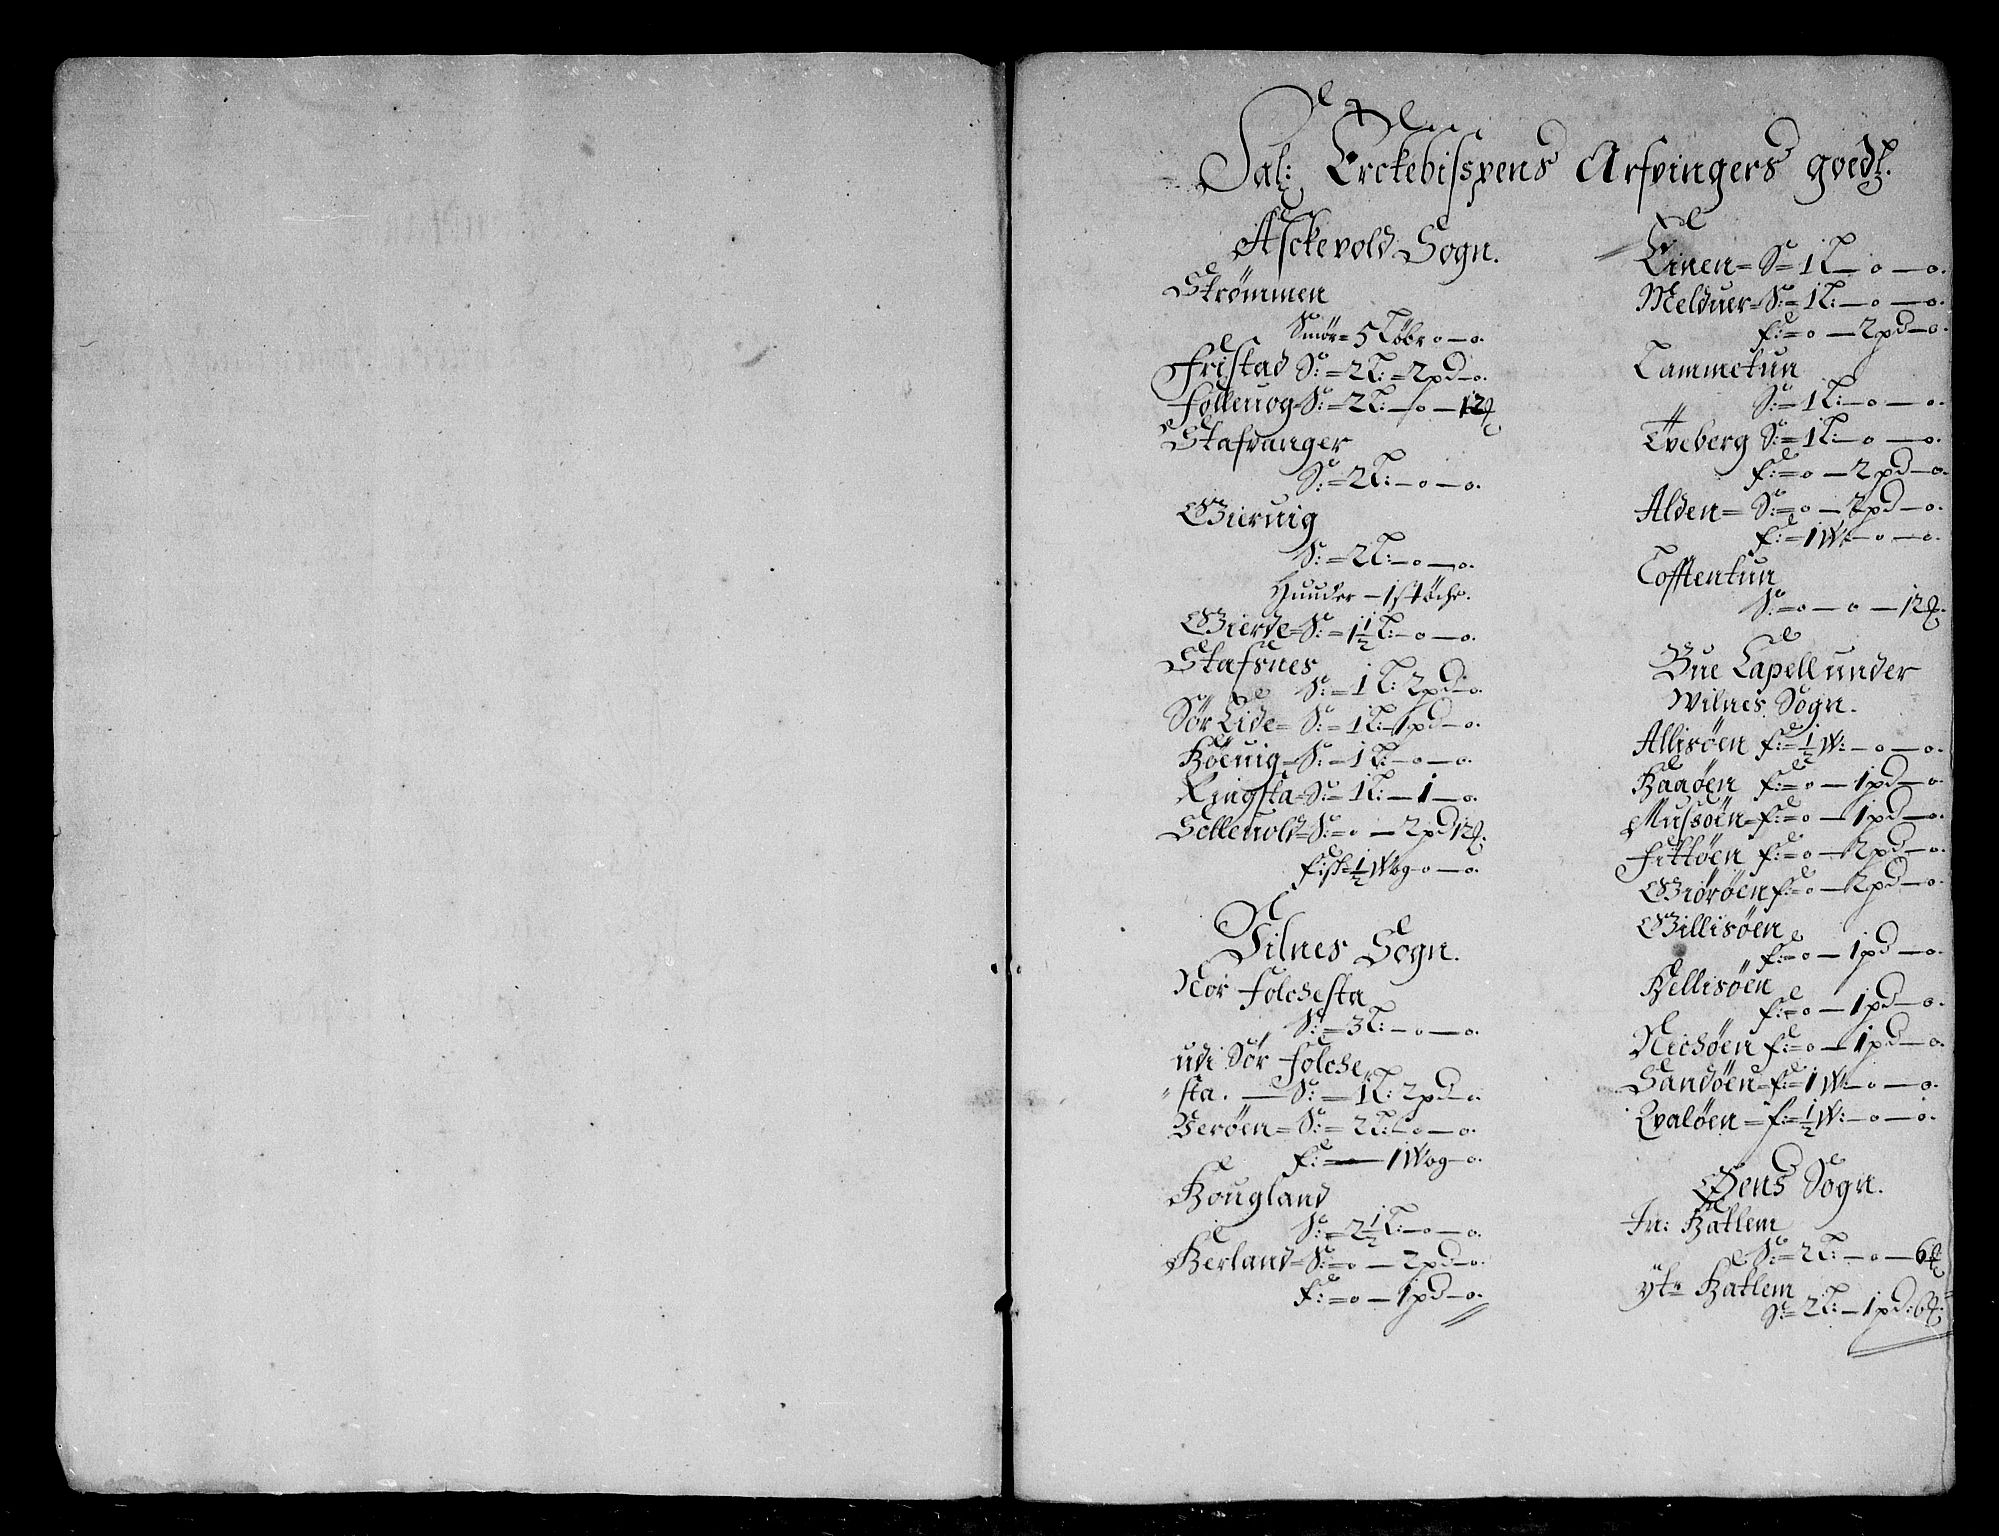 Sal: Erckebisspens Arfvingers goedz.
Asckevold Sogn.
Strømmen
Smör= 5 Löbr o — o.
Fristad S: = 2 L: = 2 pd — o.
Follevog S: = 2 L: — o — 12
Stafvanger
S: = 2 L: — o — o.
Giervig
S: = 2 L: — o — o.
Huuder — 1 støche.
Gierde = S: = 1½ L: — o — o.
Stafsnes
S: = 1 L: 2 pd — o.
Sør Lide = S: = 1 L: 1 pd — o.
Høevig = S: = 1 L: — o — o.
Ringsta = S: = 1 L: — 1 — o.
Sellevold = S: = o — 2 pd 12
fisk = ½ Wog — o — o.
Vilnes Sogn.
Nor Folchesta
S: = 3 L: — o — o.
udi Sør Folche
sta. — S: — 1 L: 2 pd — o.
Verøen = S: = 2 L: — o — o.
f: = — 1 Wog — o.
Hougland
S: = 2½ L: — o — o.
Herland = S: = o — 2 pd — o.
f: = o — 1 pd — o.
Einen = S: = 1 L — o — o.
Melduer = S: = 1 L: — o — o.
f: = o — 2 pd — o.
Tammetun
S: = 1 L: — o — o.
Tveberg S: = 1 L: — o — o.
f: = o — 2 pd — o.
Alden = S: = o — 2 pd — o.
f: = 1 W: — o — o.
Tofftentun
S: = o — o — 12
Bue Capell under
Wilnes Sogn.
Allisøen f: = ½ W: — o — o.
Haaøen f: = o — 1 pd — o.
Mussøen = f: = o — 1 pd — o.
Fittøen f: = o — 2 pd — o.
Giörøen f: = o — 2 pd — o.
Gillisøen
f: = o — 1 pd — o.
Hellisøen
f: = o — 1 pd — o.
Nichøen f: = o — 1 pd — o.
Sandøen = f: = 1 W: — o — o.
Qvaløen = f: = ½ W: — o — o.
Øens Sogn.
In: Hatlem
S: = 2 L: — o — 6
yt= Hatlem
S: = 2 L: — 1 pd: 6